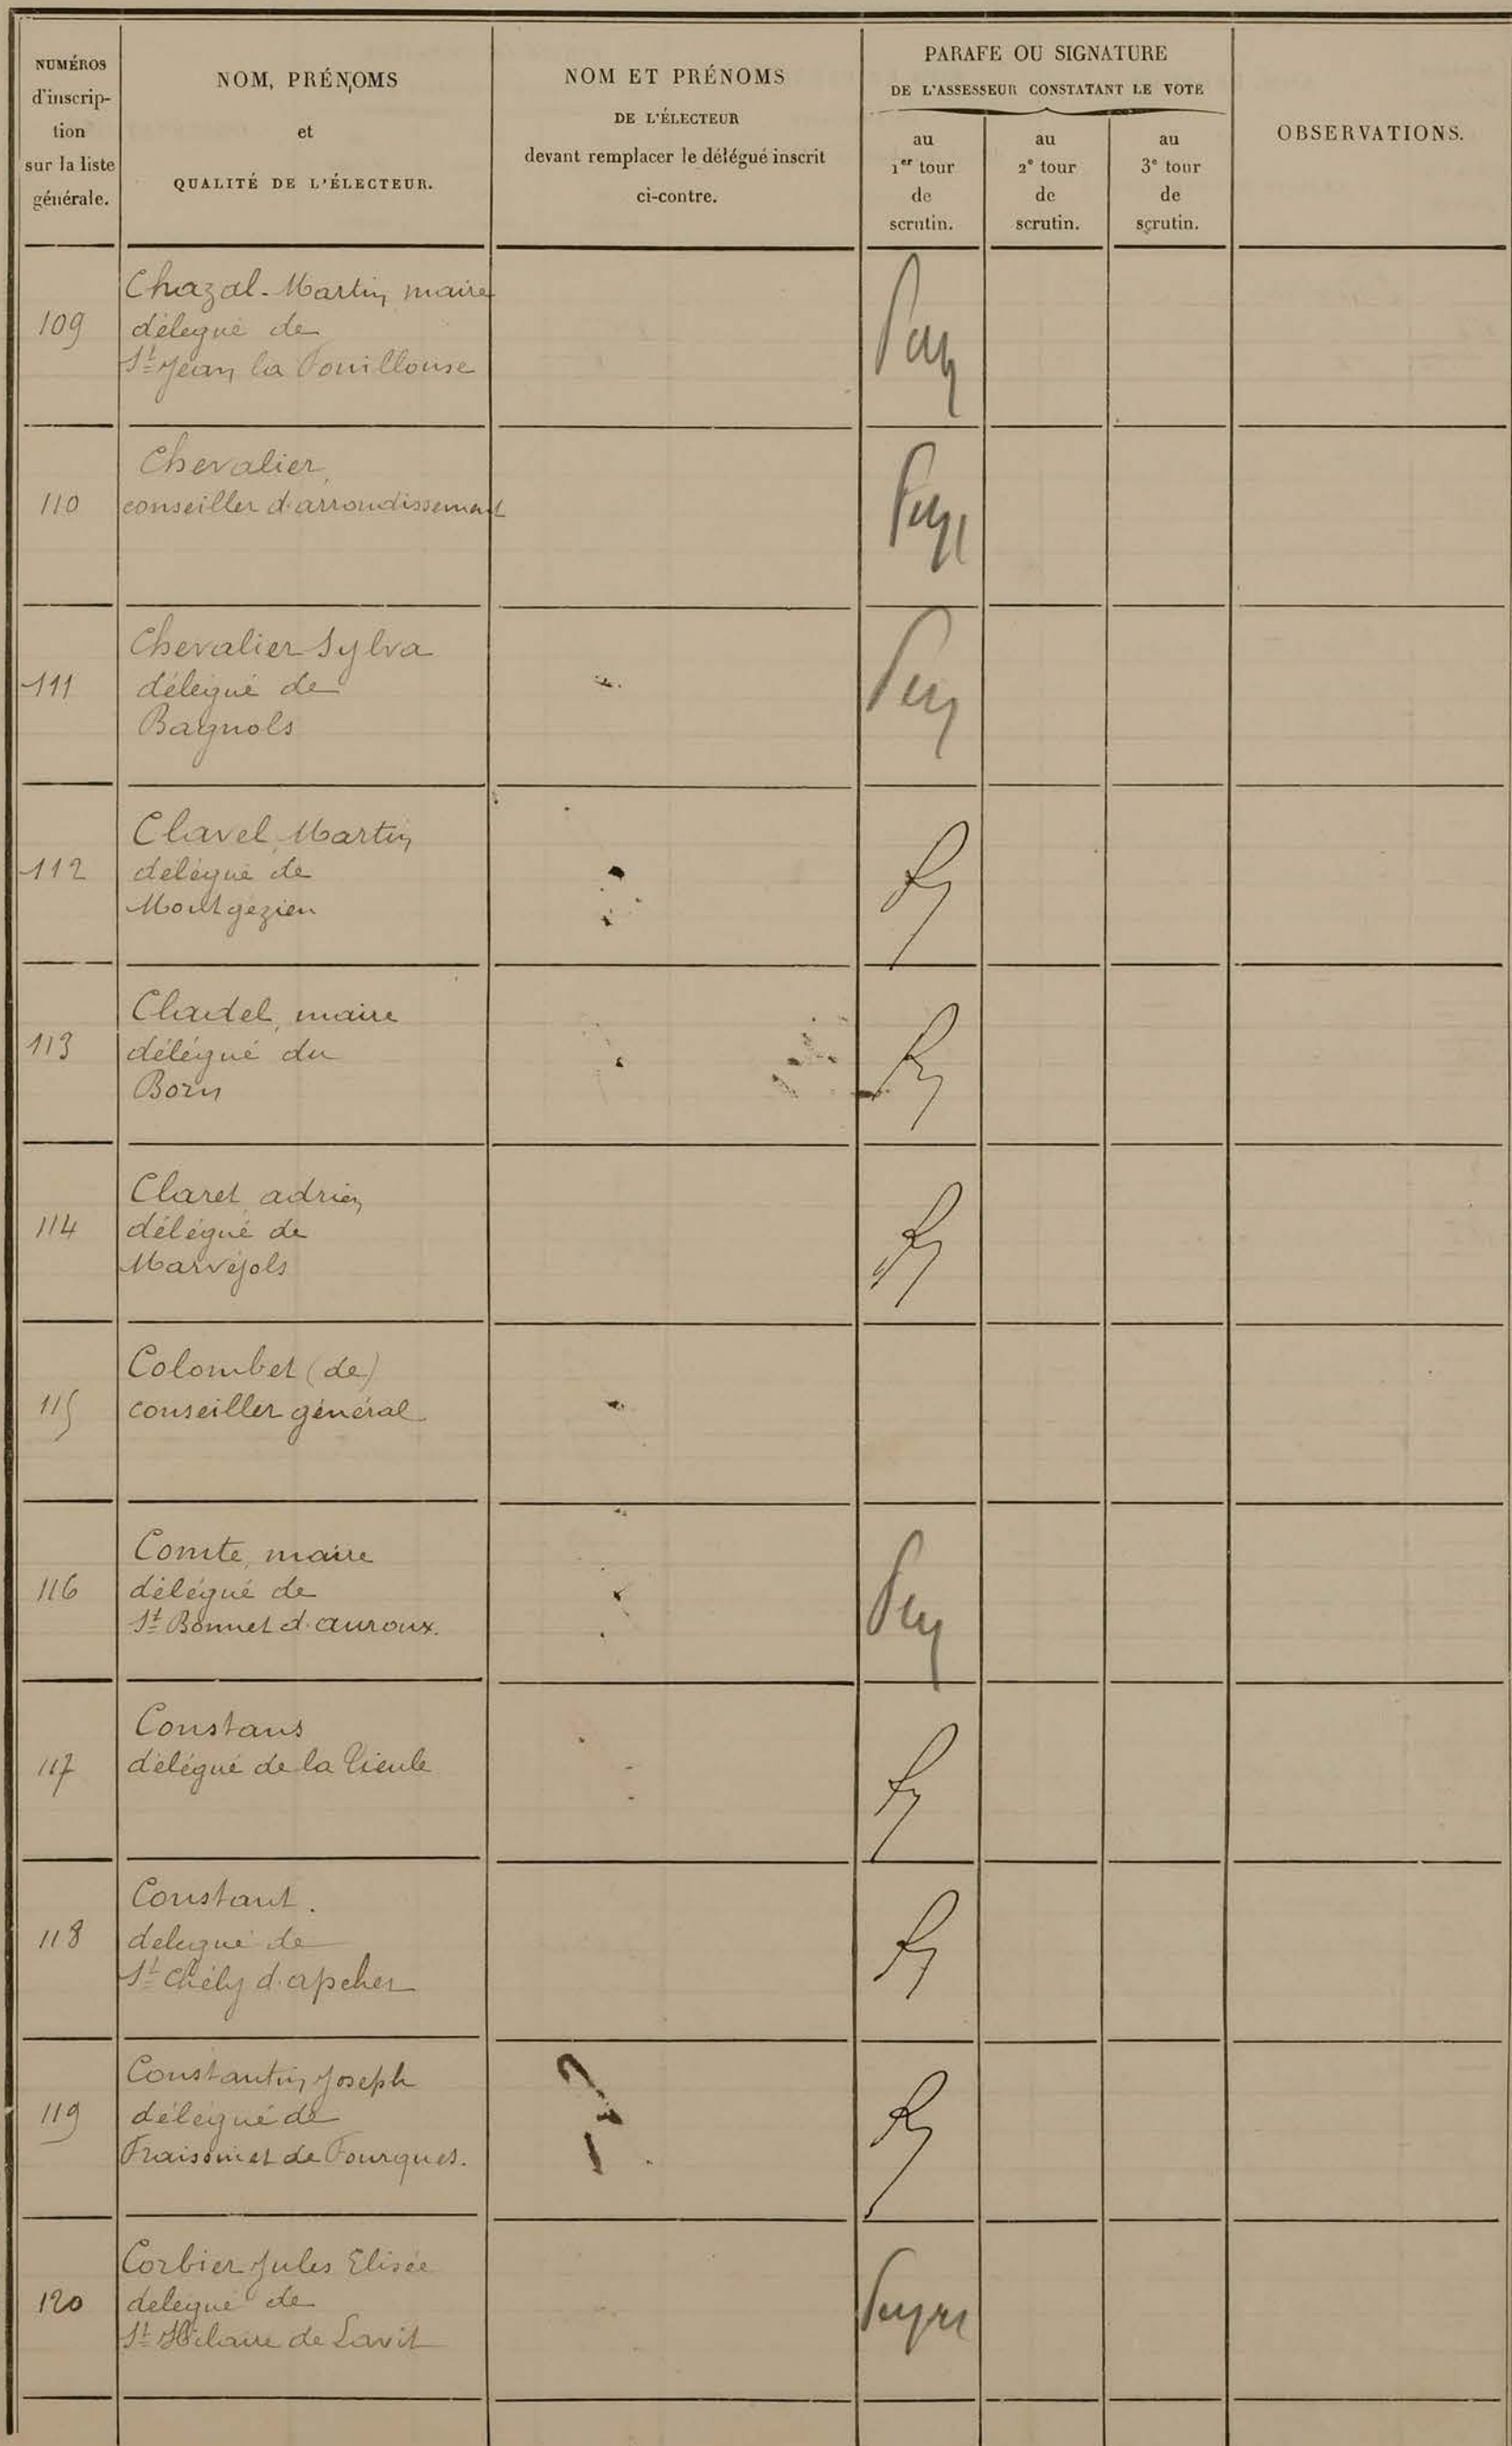 NUMÉROS
d'inscrip-
tion
sur la liste
générale.
NOM, PRÉNOMS
et
QUALITÉ DE L'ÉLECTEUR.
NOM ET PRÉNOMS
DE L'ÉLECTEUR
devant remplacer le délégué inscrit
ci-contre.
PARAFE OU SIGNATURE
DE L'ASSESSEUR CONSTATANT LE VOTE
au
1er tour
de
scrutin.
au
2e tour
de
scrutin.
au
3e tour
de
scrutin.
OBSERVATIONS.
109
Chazal-Martin, maire
délégué de
St Jean la Fouillouse
110
Chevalier,
conseiller d'arrondissement
111
Chevalier Sylva
délégué de
Bagnols
112
Clavel, Martin
délégué de
Montgezieu
113
Cladel, maire
délégué du
Born
114
Claret adrien
délégué de
Marvejols
115
Colombet (de)
conseiller général
116
Comte, maire
délégué de
St Bonnet d'auroux.
117
Constans
délégué de la Tieule
118
Constant.
délégué de
St Chély d'apcher
119
Constantin, Joseph
délégué de
Fraissinet de Fourques.
120
Corbier Jules Elisée
délégué de
St Hilaire de Lavit